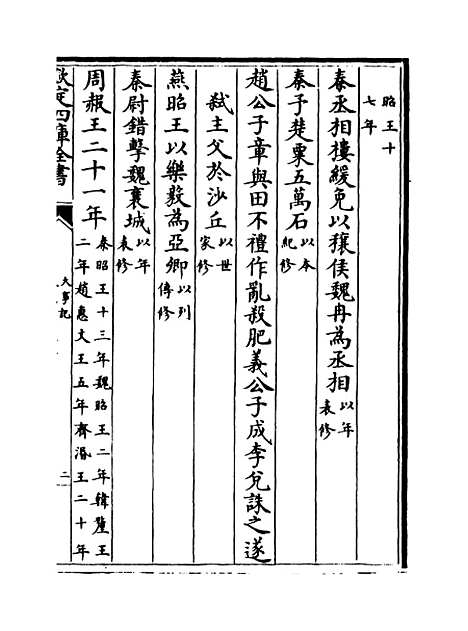 昭王十
七年
秦丞相樓緩免以穰侯魏冉為丞相以年
表修
秦予楚粟五萬石以本
紀修
趙公子章與田不禮作亂殺肥義公子成李兌誅之遂
弑主父於沙丘以世
家修
燕昭王以樂毅為亞卿以列
傳修
秦尉錯擊魏襄城以年
表修
周赧王二十一年秦昭王十三年魏昭王二年韓釐王
二年趙惠文王五年齊湣王二十年
欽定四庫全書
大事記
二